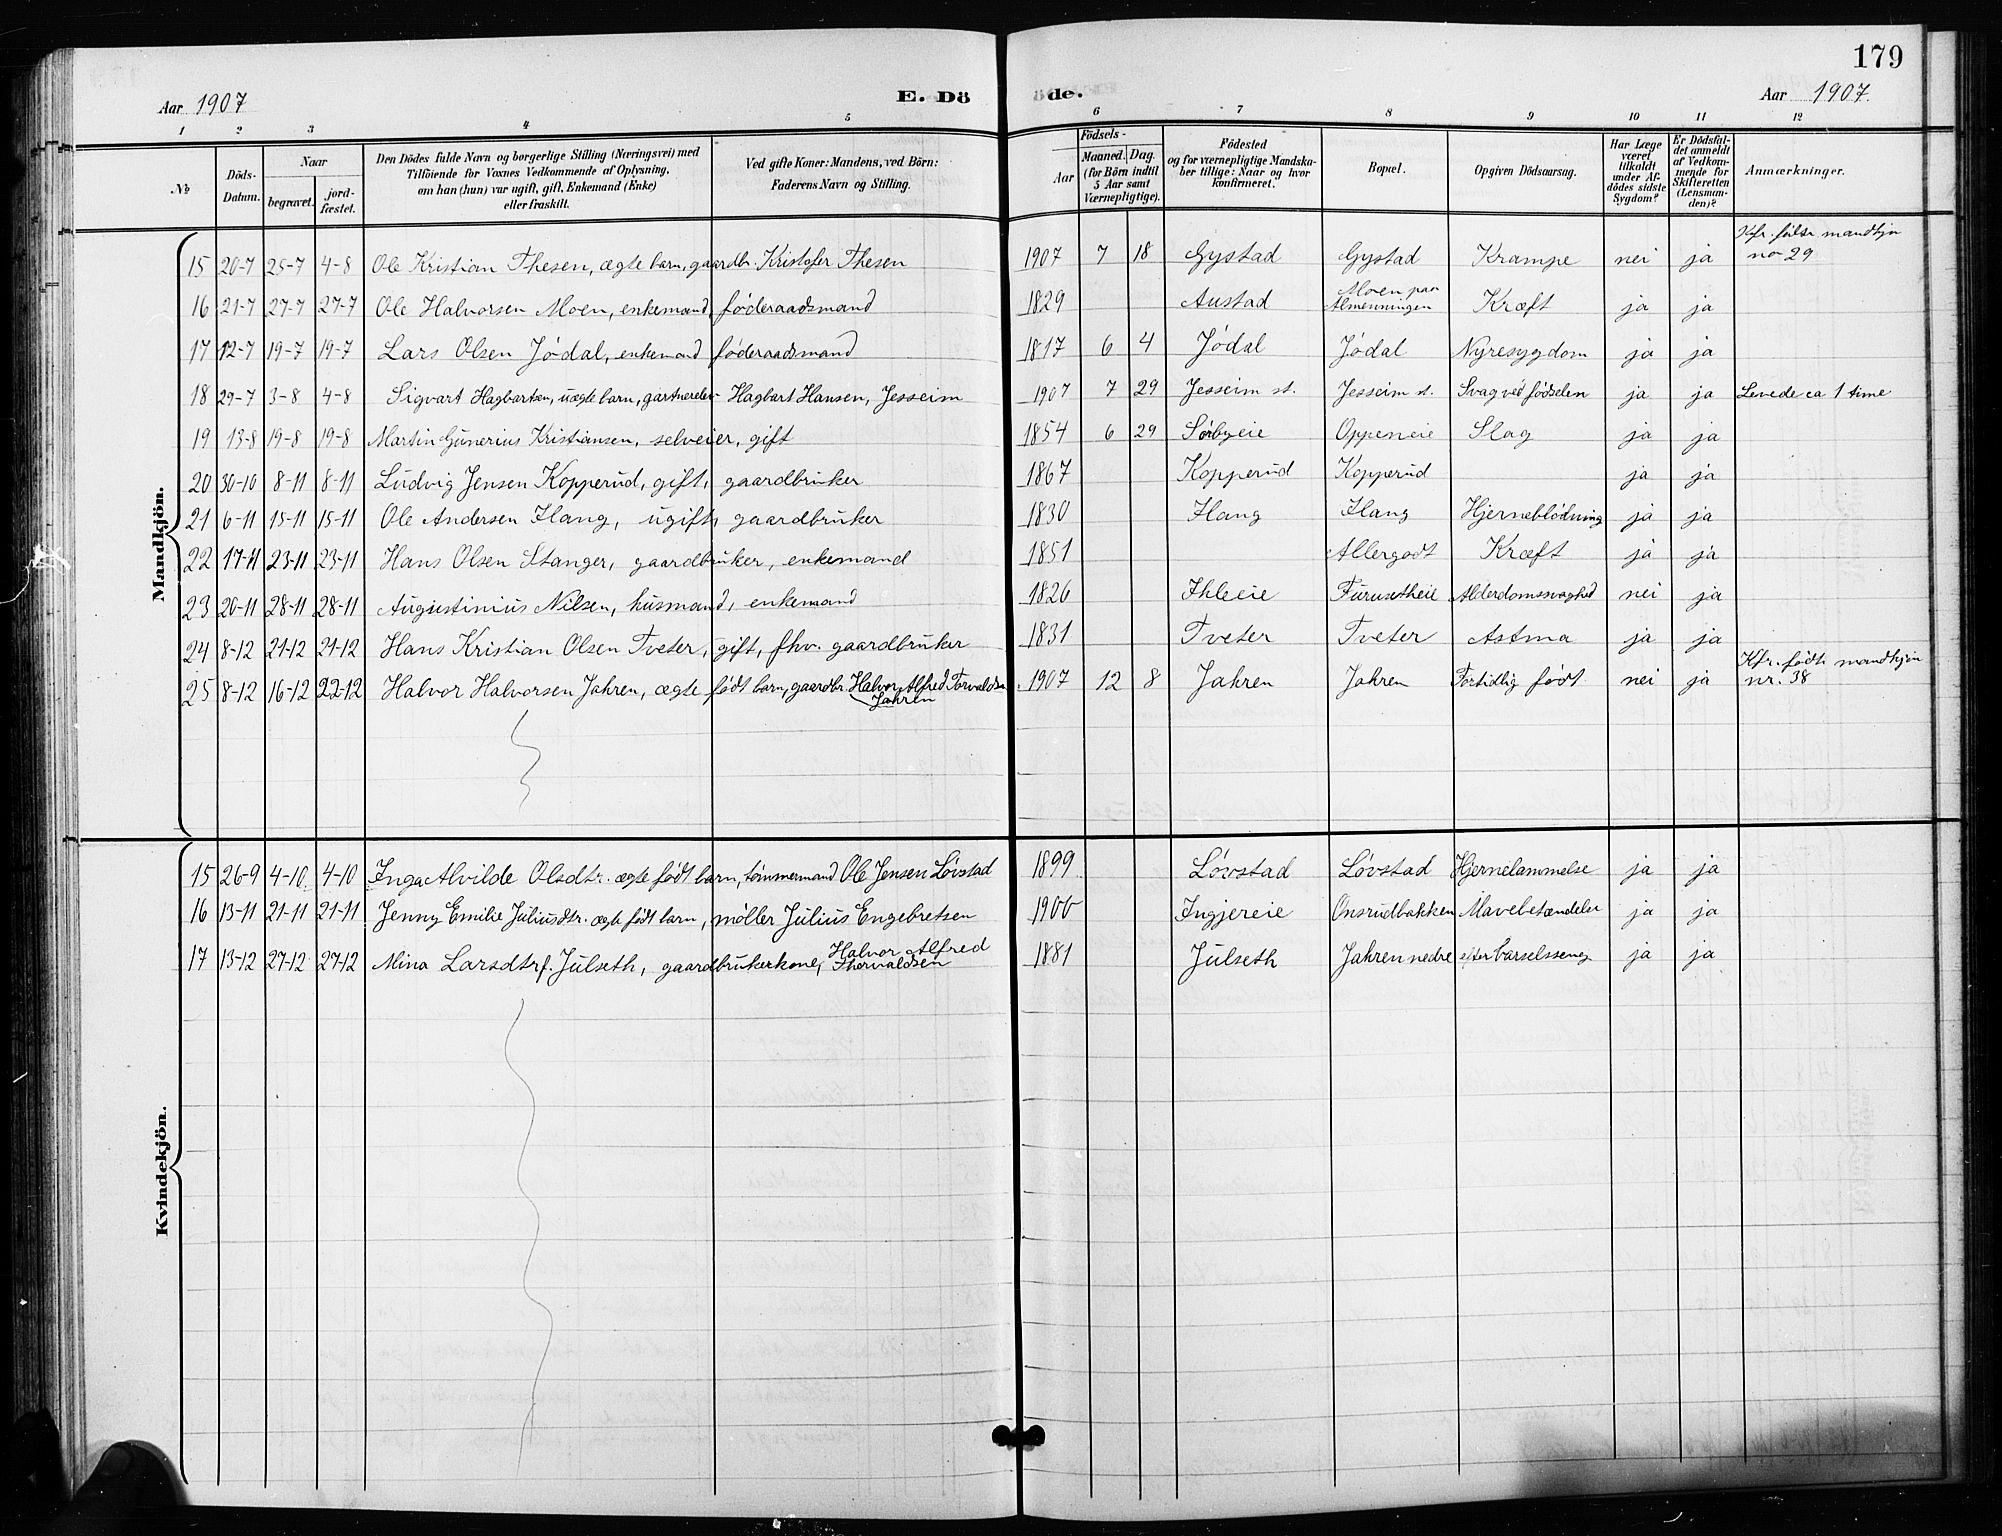 179
Aar 1907 E. Dö öde. Aar 1907.
1 2 3 4 5 6 7 8 9 10 11 12
No
Döds-Datum.
Naar
begravet.
jord-fæstet.
Den Dödes fulde Navn og borgerlige Stilling (Næringsvei) med
Tilföiende for Voxnes Vedkommende af Oplysning,
om han (hun) var ugift, gift, Enkemand (Enke)
eller fraskilt.
Ved gifte Koner: Mandens, ved Börn:
Faderens Navn og Stilling.
Födsels-
Aar
Maaned. Dag.
(for Börn indtil
5 Aar samt
Værnepligtige).
Födested
og for værnepligtige Mandska-
ber tillige: Naar og hvor
konfirmeret.
Bopæl.
Opgiven Dödsaarsag.
Har Læge
været
tilkaldt
under Af-
dödes sidste
Sygdom?
Er Dödsfal-
det anmeldt
af Vedkom-
mende for
Skifteretten
(Lensman-
den)?
Anmærkninger.
Mandkjön.
15 20-7 25-7 4-8 Ole Kristian Thesen, ægte barn, gaardbr. Kristofer Thesen 1907 7 18 Gystad Gystad Krampe nei ja Kfr. mandkjøn no 29
16 21-7 27-7 27-7 Ole Halvorsen Moen, enkemand, føderaadsmand 1829 Austad Moen paa Almenningen Kræft ja ja
17 12-7 19-7 19-7 Lars Olsen Jødal, enkemand føderaadsmand 1817 6 4 Jødal Jødal Nyresygdom ja ja
18 29-7 3-8 4-8 Sigvart Hagbartsen, uægte barn, gartnerelev Hagbart Hansen, Jesseim 1907 7 29 Jesseim st. Jesseim st. Svag ved fødselen ja ja Levede ca 1 time
19 13-8 19-8 19-8 Martin Gunerius Kristiansen, selveier, gift 1854 6 29 Sørbyeie Oppeneie Slag ja ja
20 30-10 8-11 8-11 Ludvig Jensen Kopperud, gift, gaardbruker 1867 Kopperud Kopperud ja ja
21 6-11 15-11 15-11 Ole Andersen Ilang, ugift, gaardbruker 1830 Ilang Ilang Hjerneblødning ja ja
22 17-11 23-11 23-11 Hans Olsen Stanger, gaardbruker, enkemand 1851 Allergodt Kræft ja ja
23 20-11 28-11 28-11 Augustinius Nilsen, husmand, enkemand 1826 Ihleeie Furusetheie Alderdomssvaghed nei ja
24 8-12 21-12 21-12 Hans Kristian Olsen Tveter, gift, fhv. gaardbruker 1831 Tveter Tveter Astma ja ja
25 8-12 16-12 22-12 Halvor Halvorsen Jahren, ægte født barn, gaardbr. Halvor Alfred Torvaldsen Jahren 1907 12 8 Jahren Jahren Fortidlig født nei ja Kfr. fødte mandkjøn nr. 38
Kvindekjön.
15 26-9 4-10 4-10 Inga Alvilde Olsdtr. ægte født barn, tømmermand Ole Jensen Løvstad 1899 Løvstad Løvstad Hjernelammelse ja ja
16 13-11 21-11 21-11 Jenny Emilie Juliusdtr. ægte født barn, møller Julius Engebretsen 1900 Ingjereie Onsrudbakken Mavebetændelse ja ja
17 13-12 27-12 27-12 Mina Larsdtr f. Julseth, gaardbrukerkone, Halvor Alfred Thorvaldsen 1881 Julseth Jahren nedre efter barselsseng ja ja